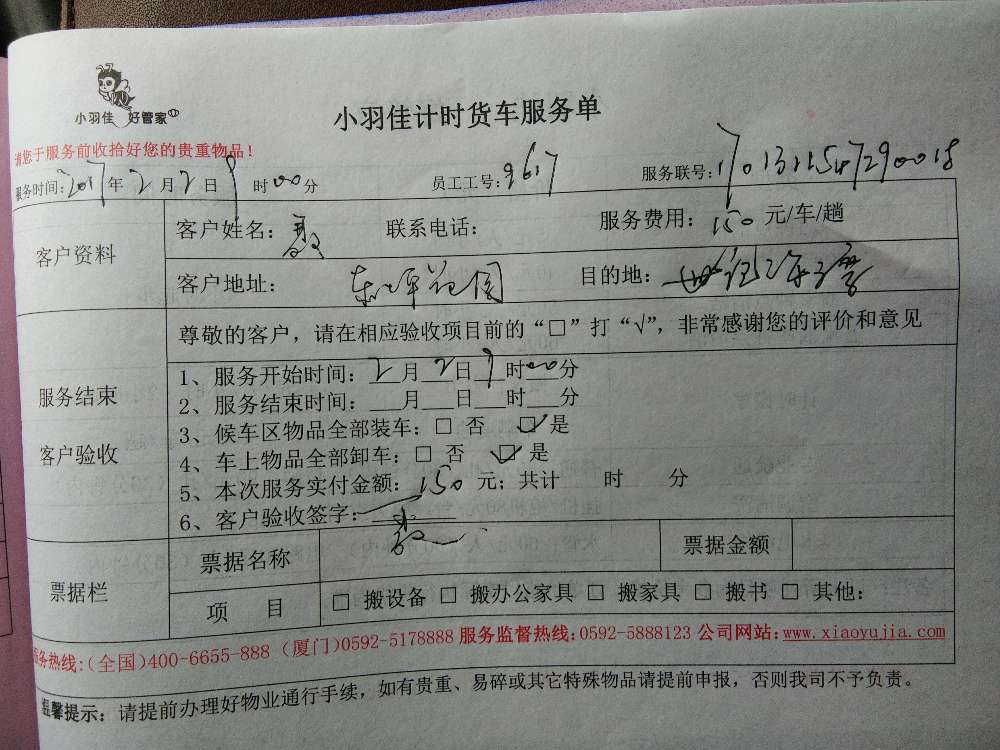 小羽佳 好管家
小羽佳计时货车服务单
请您于服务前收拾好您的贵重物品！
服务时间：2017年2月2日9时00分 员工工号：9617 服务联号：
客户资料
客户姓名： 联系电话： 服务费用：150元/车/趟
客户地址： 目的地：
尊敬的客户，请在相应验收项目前的“□”打“√”，非常感谢您的评价和意见
服务结束
客户验收
1、服务开始时间：2月2日9时00分
2、服务结束时间：___月___日___时___分
3、候车区物品全部装车：□ 否 ☑是
4、车上物品全部卸车：□ 否 ☑是
5、本次服务实付金额：150元；共计 时 分
6、客户验收签字：
票据栏
票据名称 票据金额
项 目 □ 搬设备 □ 搬办公家具 □ 搬家具 □ 搬书 □ 其他：
服务热线：（全国）400-6655-888（厦门）0592-5178888 服务监督热线：0592-5888123 公司网站：www.xiaoyujia.com
温馨提示：请提前办理好物业通行手续，如有贵重、易碎或其它特殊物品请提前申报，否则我司不予负责。